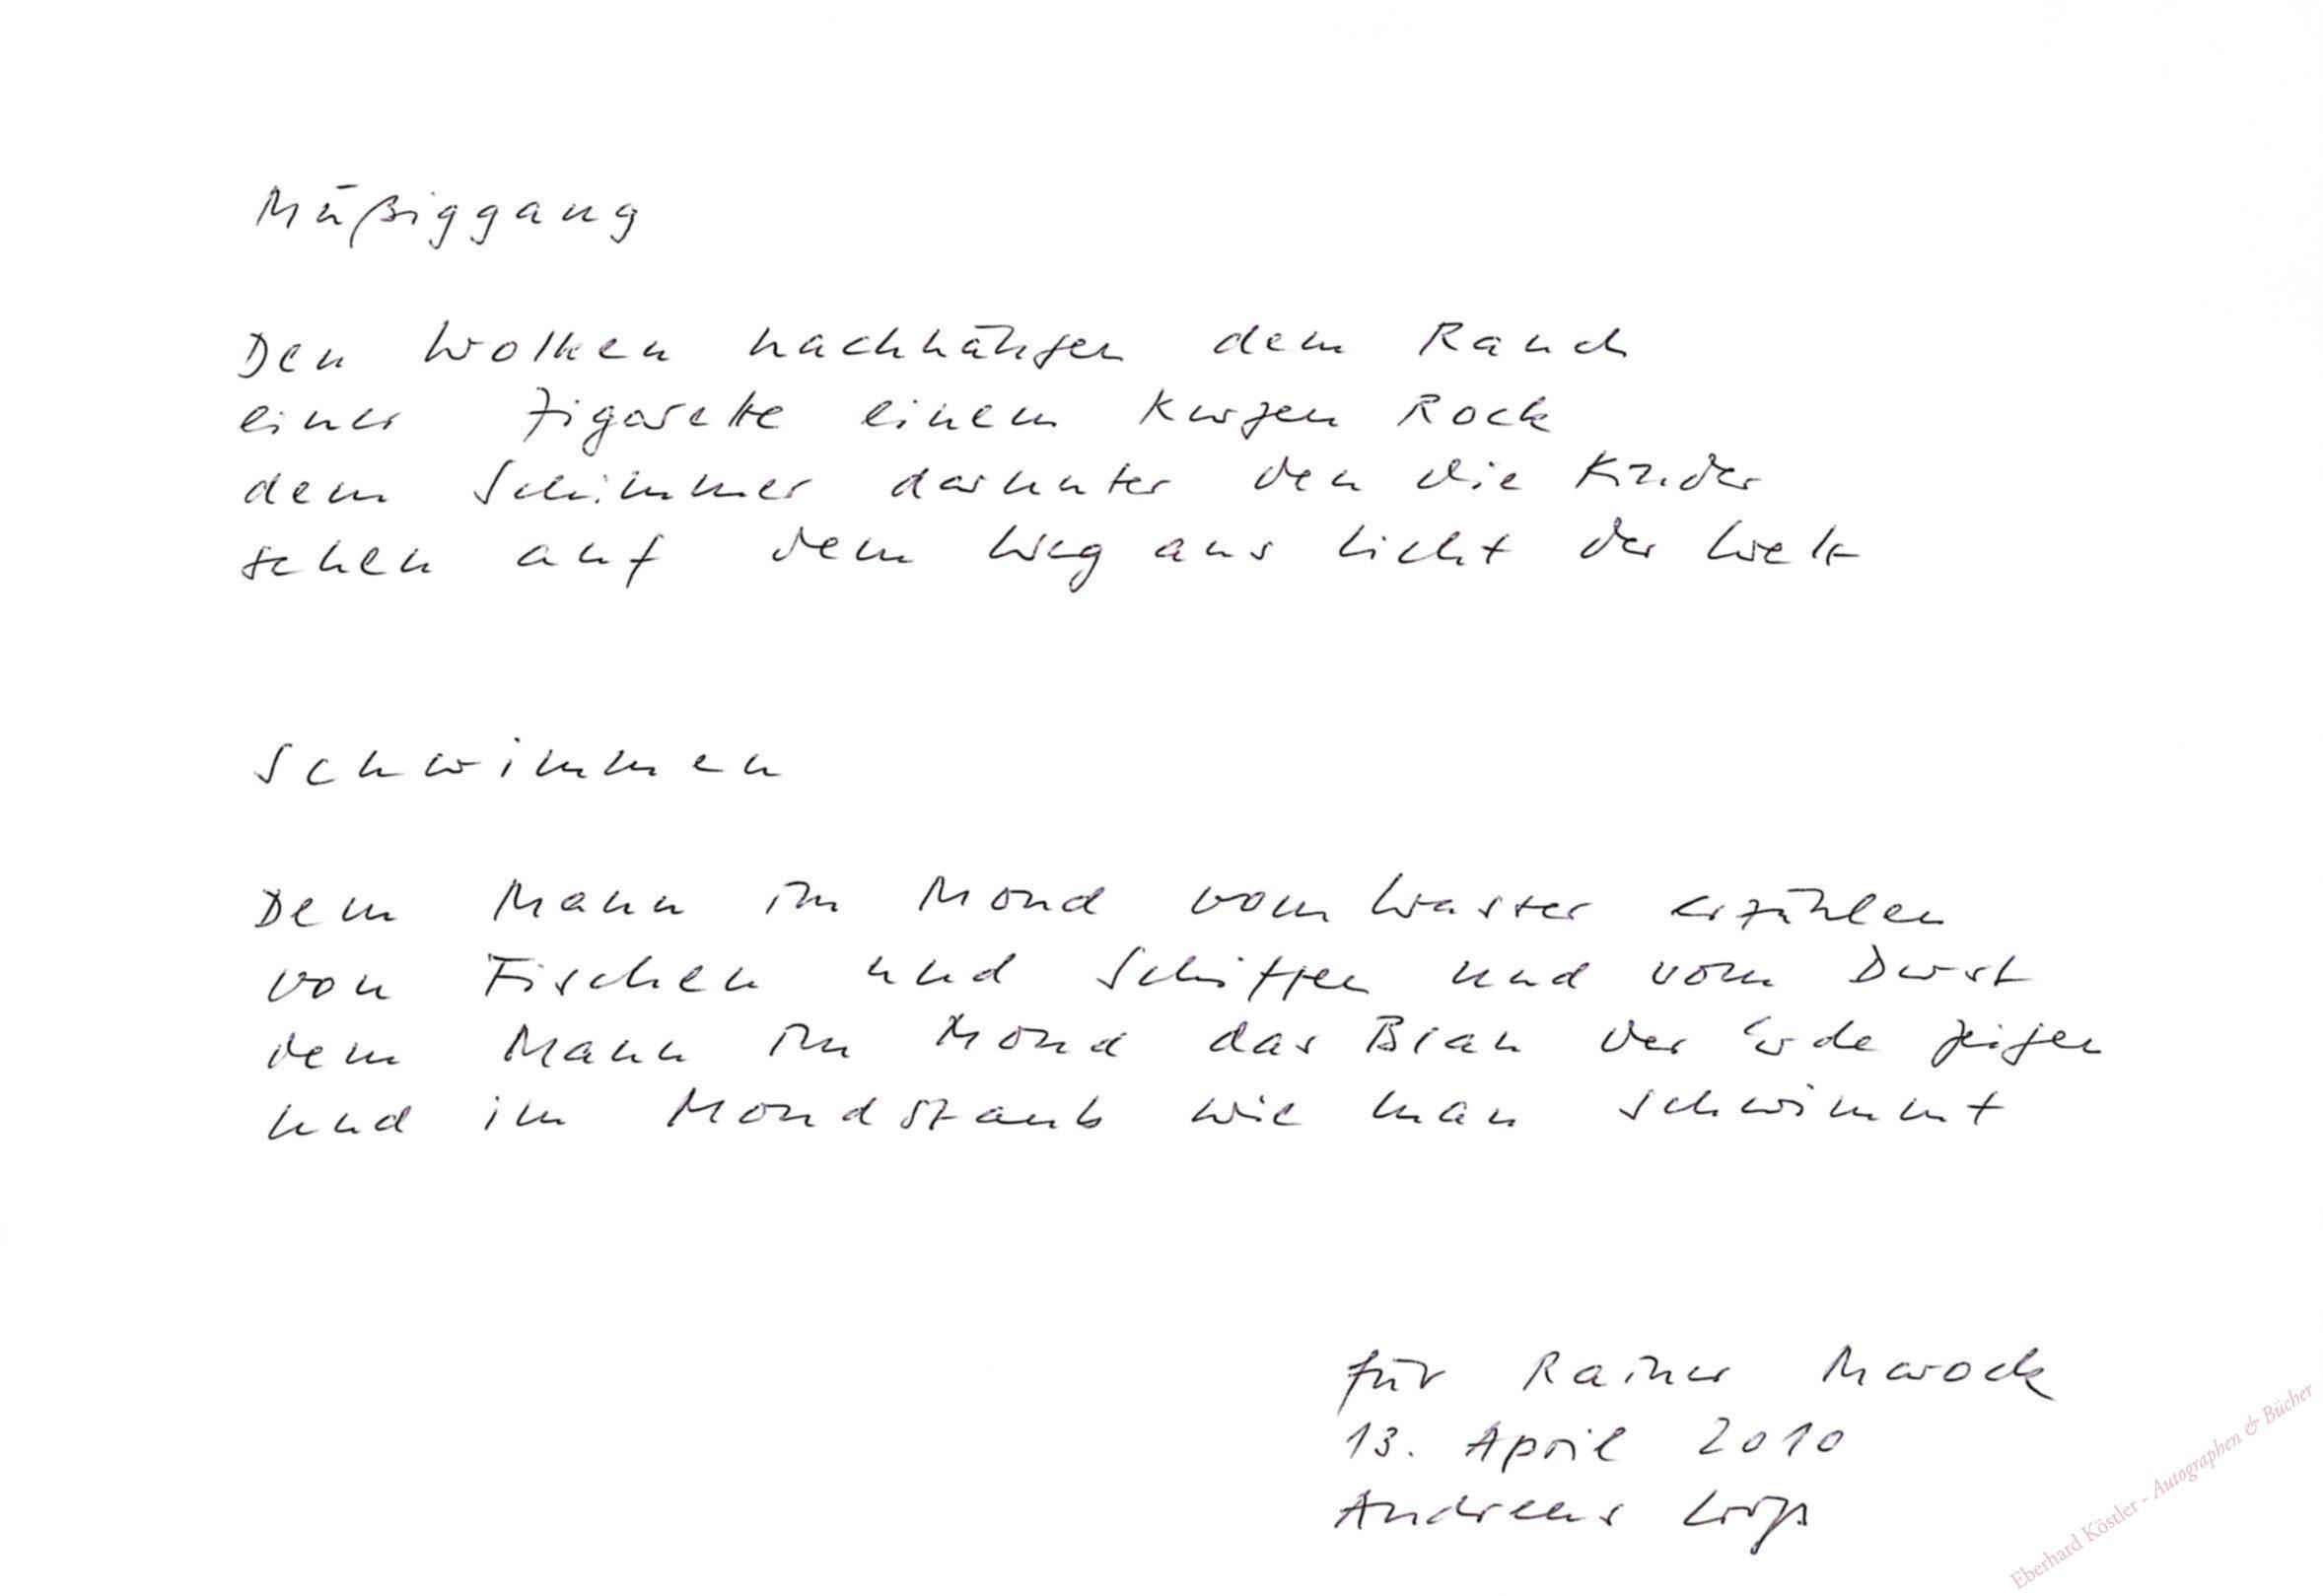 Müßiggang
Den Wolken nachhängen dem Rauch
einer Zigarette einem kurzen Rock
dem Schimmer darunter den die Kinder
sehen auf dem Weg ans Licht der Welt
Schwimmen
Dem Mann im Mond vom Wasser erzählen
von Fischen und Schiffen und vom Durst
dem Mann im Mond das Blau der Erde zeigen
und im Mondstaub wie man schwimmt
für Rainer Marock
13. April 2010
Andreas
Eberhard Köstler - Autographen & Bücher